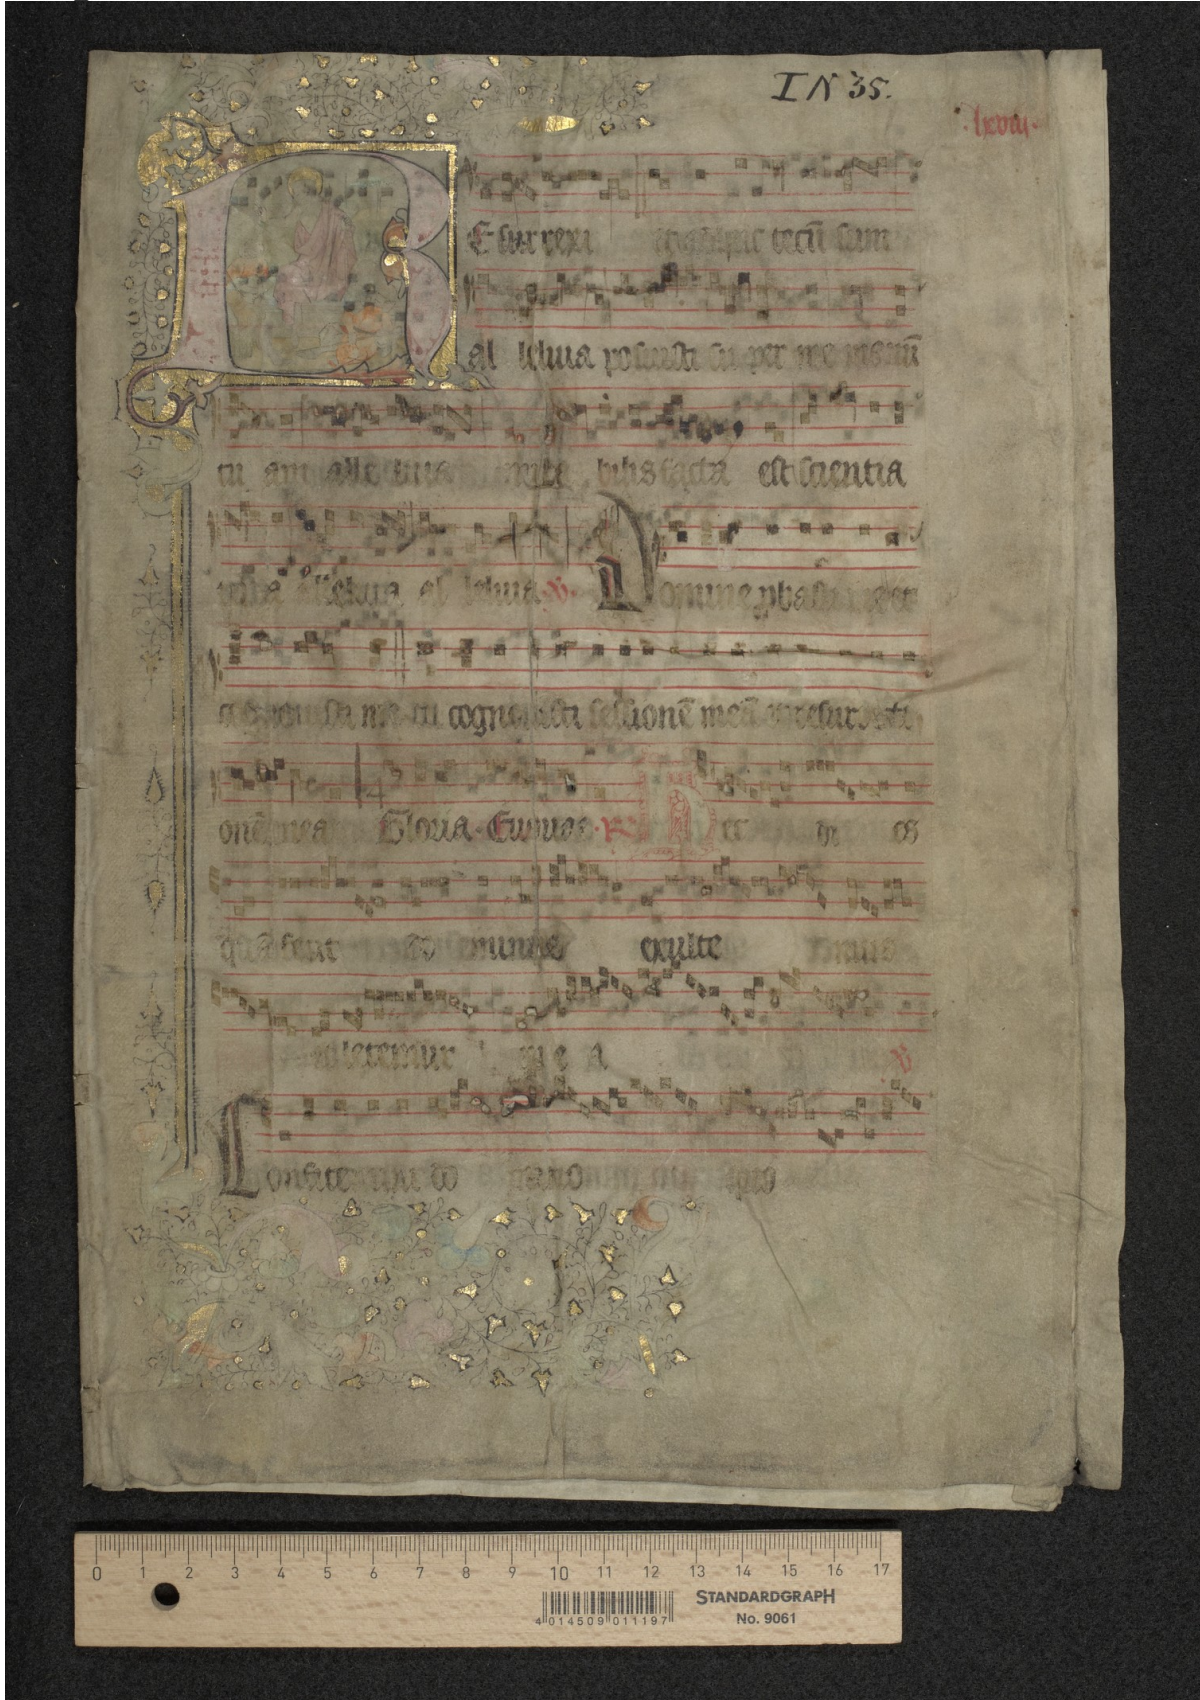 IN 35.
lxviii
R Esurrexi et adhuc tecū sum
al leluia posuisti super me manū
tu am alle luia mira bilis facta est scientia
tua alleluia al leluia. V. Domine pbasti me et
cognouisti me tu cognouisti sessionē meā et resurrecti
onē mea Gloria. Euouae. R. Hec di es
quā fecit do minus exulte mus
letemur in e a V
Confitemini do mino
0 1 2 3 4 5 6 7 8 9 10 11 12 13 14 15 16 17
4 014509 011197
STANDARDGRAPH
No. 9061